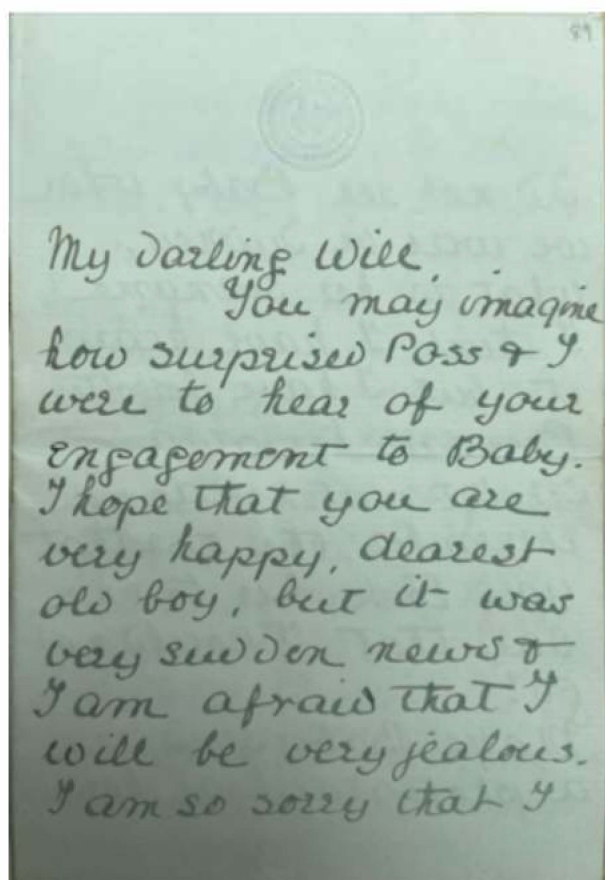 89
My Darling Will,
You may imagine
how surprised Poss & I
were to hear of your
engagement to Baby.
I hope that you are
very happy, dearest
old boy, but it was
very sudden news &
I am afraid that I
will be very jealous.
I am so sorry that I